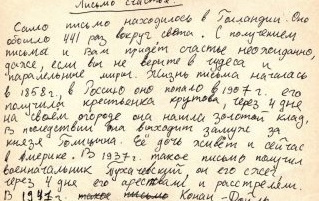 Письмо счастья.
Само письмо находилось в Голландии. Оно
обошло 441 раз вокруг света. С получением
письма к Вам придёт счастье неожиданно,
даже, если вы не верите в чудеса и
параллельные миры. Жизнь письма началась
в 1858г, в Россию оно попало в 1907г. его
получила крестьянка крутова, через 4 дня
на своём огороде она нашла золотой клад,
В последствии она выходит замуж за
князя Голицина. Её дочь живёт и сейчас
в Америке. В 1937г. такое письмо получил
военачальник Тухачевский он его сжег
через 4 дня его арестовали и расстреляли.
В Конан-Дойль